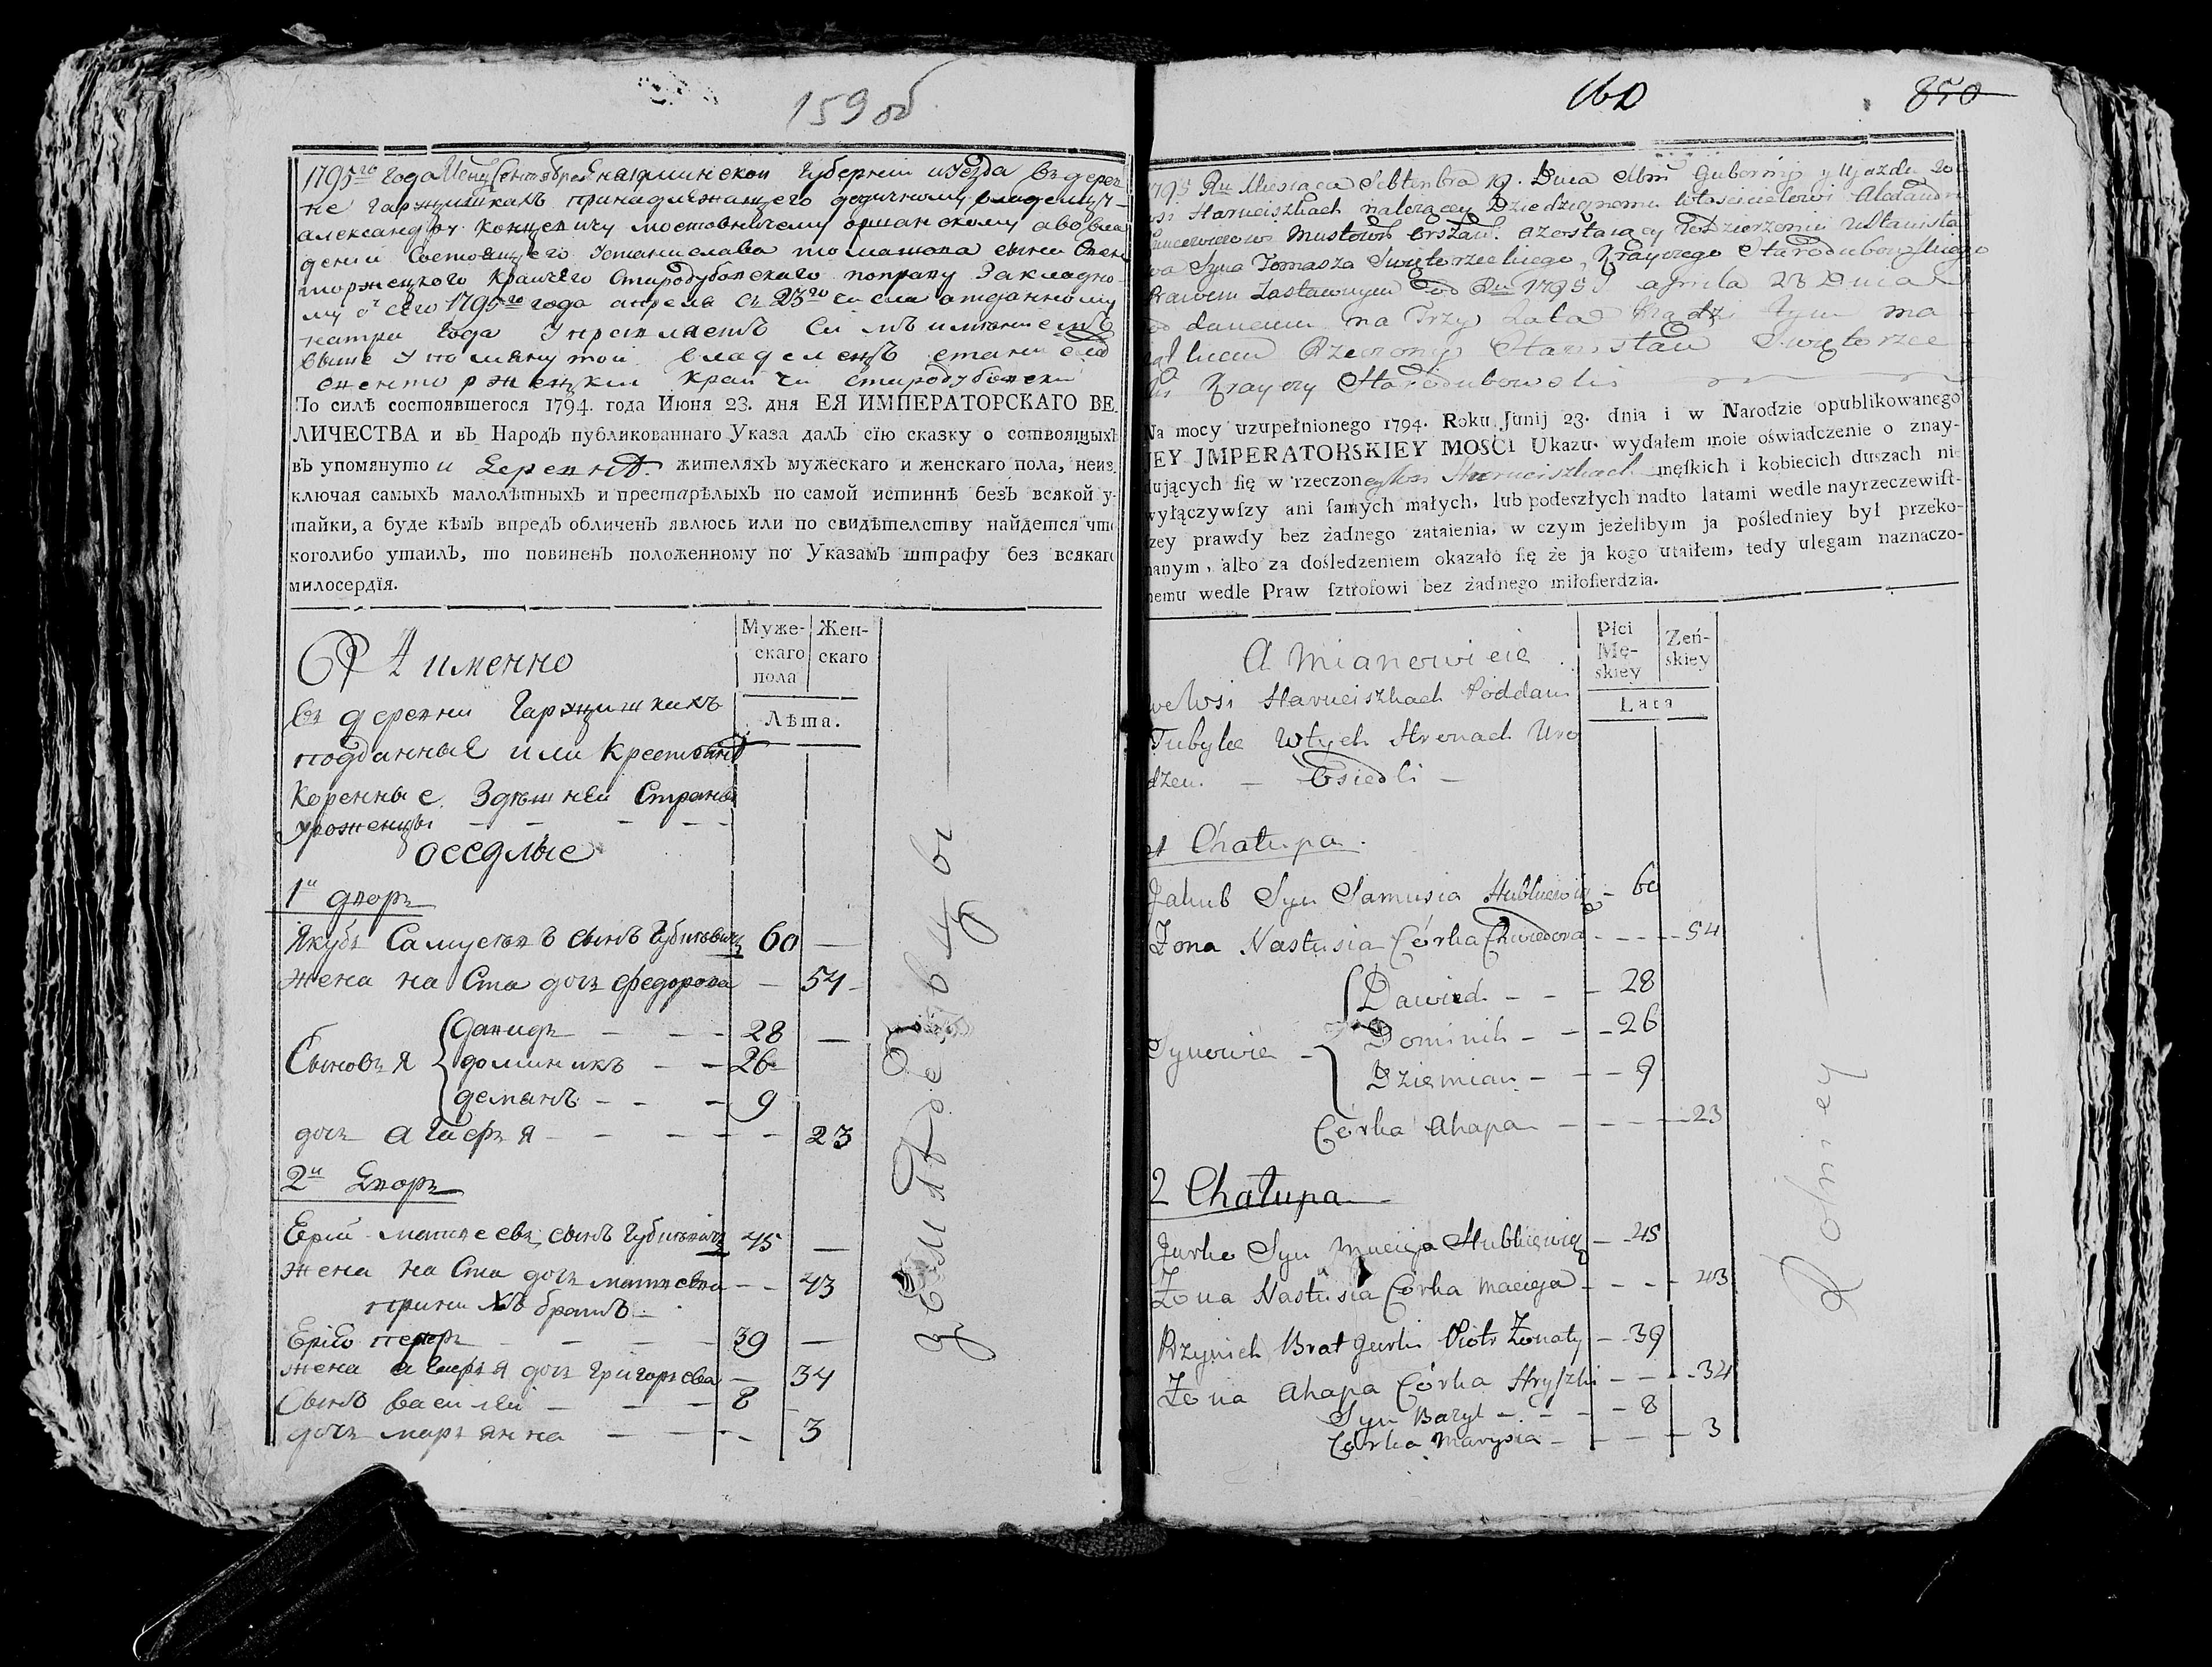 159 об
1795го года Сентября Минской Губернии иуезда въ дерев
не Гарнцишкахъ принадлежащего дедичному владельцу
александру Концевичу мостовничему оршанскому авовла
дении Состоящего Устанислава томашова сына Свен
торжецкого Крайчего Стародубовскаго поправу Закладно
му с сего 1795го года апреля съ 23го числа отданному
натри года Управляетъ симъ имениемъ
выше Упомянутой владелецъ станислав
свенторжецкии Крайчи стародубовски
По силѣ состоявшегося 1794. года Июня 23. дня ЕЯ ИМПЕРАТОРСКАГО ВЕ-
ЛИЧЕСТВА и въ Народъ публикованнаго Указа далъ сїю сказку о сотвоящыхъ
въ упомянутои Деревнѣ жителяхъ мужескаго и женскаго пола, неиз-
ключая самыхъ малолѣтныхъ и престарѣлыхъ по самой истиннѣ безъ всякой у-
тайки, а буде кѣмъ впредъ обличенъ явлюсь или по свидѣтелству найдется что
коголибо утаилъ, то повиненъ положенному по Указамъ штрафу без всякаго
милосердїя.
А именно
Муже-
скаго
пола
Жен-
скаго
Лѣта.
въ деревни Гарнцишкахъ
подданные или Крестьянѣ
Коренные Здѣшнеи Страны
уроженцы
оседлые
1й дворъ
Якубъ Самуселъ сынъ Гублевичъ 60 —
жена на Ста дочъ Федорова — 54
Сыновъя
давидъ 28 —
доминикъ 26
деманъ 9
дочъ агаефъя 23
2й Дворъ
Ерїй матвеевъ сынъ Гублевичъ 45 —
жена на Ста дочъ матвевна 43
принихъ братъ
Ерїю петръ 39 —
жена агаефъя дочъ григоръева — 34
Сынъ васили 8
дочъ маръянна 3
160
850
1795 Ru Miesiąca Sebtenbra 19. Dnia Mbm Gubernij y Ujazdu we
wsi Harnciszkach należącey Dziedzicznemu Włościcielowi Alaxandr
Mustown Orszań. a zostaiącey w Dzierżeniu u Stanisła
wa Syna Tomasza Swiętorzeckiego, Krayczego Starodubowskiego
Prawem Zastawnym od Ru 1795 aprila 23 Dnia
od danem na Trzy Lata Rządzi tym ma
iątkiem Rzeczony Stanisław Swiętorzec
ki Krayczy Starodubowski
Na mocy uzupełnionego 1794. Roku Junij 23. dnia i w Narodzie opublikowanego
JEY JMPERATORSKIEY MOSCI Ukazu wydałem moie oświadczenie o znay-
dujących ſię w rzeczoney wsi Harnciszkach męſkich i kobiecich duszach nie
wyłączywſzy ani ſamych małych, lub podeszłych nadto latami wedle nayrzeczewiſt-
ſzey prawdy bez żadnego zataienia, w czym jeżelibym ja poſledniey był przeko-
nanym, albo za doſledzeniem okazało ſię że ja kogo utaiłem, tedy ulegam naznaczo-
nemu wedle Praw ſztrofowi bez żadnego miłoſierdzia.
A Mianowicie
Płci
Mę-
skiey
Zeń-
skiey
Lata
we Wsi Harnciszkach Poddani
Tubylce Wtych Stronach Uro
dzen. — Osiedli —
1 Chałupa.
Jakub Syn Samusia Hublicwicz — 60
Zona Nastusia Córka Chwiedora — 54
Synowie
Dawid — 28
Dominik — 26
Dziemian — 9
Córka Ahapa — 23
2 Chałupa
Jurko Syn Macieja Hublicwicz — 45
Zona Nastusia Córka Macieja — 43
Przynich Brat Jurki Piotr Zonaty — 39
Zona Ahapa Córka Hryſzki — 34
Syn Bazyl — 8
Córka Marysia — 3